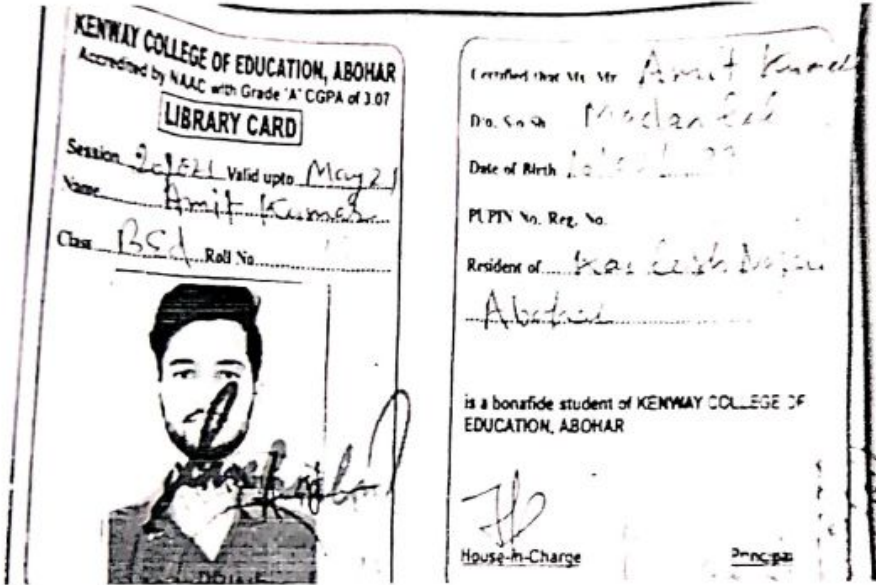 KENWAY COLLEGE OF EDUCATION, ABOHAR
Accredited by NAAC with Grade 'A' CGPA of 3.07
LIBRARY CARD
Session Valid upto May 21
Name Amit Kumar
Class BEd Roll No.
Certified that Ms. Mr. Amit Kumar
D/o. S/o Sh. Madan Lal
Date of Birth
PUPIN No. Reg. No.
Resident of Kailash Nagar
Abohar
is a bonafide student of KENWAY COLLEGE OF
EDUCATION, ABOHAR
House-in-Charge Principal